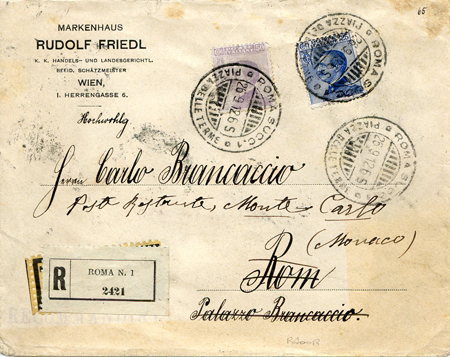 65
MARKENHAUS
RUDOLF FRIEDL
K. K. HANDELS- UND LANDESGERICHTL.
BEEID. SCHÄTZMEISTER
WIEN,
I. HERRENGASSE 6.
ROMA SUCC. 1
PIAZZA DELLE TERME
ROMA
PIAZZA DELLE
ROMA
Hochwohlg
Herrn Carlo Brancaccio
Poste Restante, Monte-Carlo
(Monaco)
Rom
Palazzo Brancaccio.
R
ROMA N. 1
2421